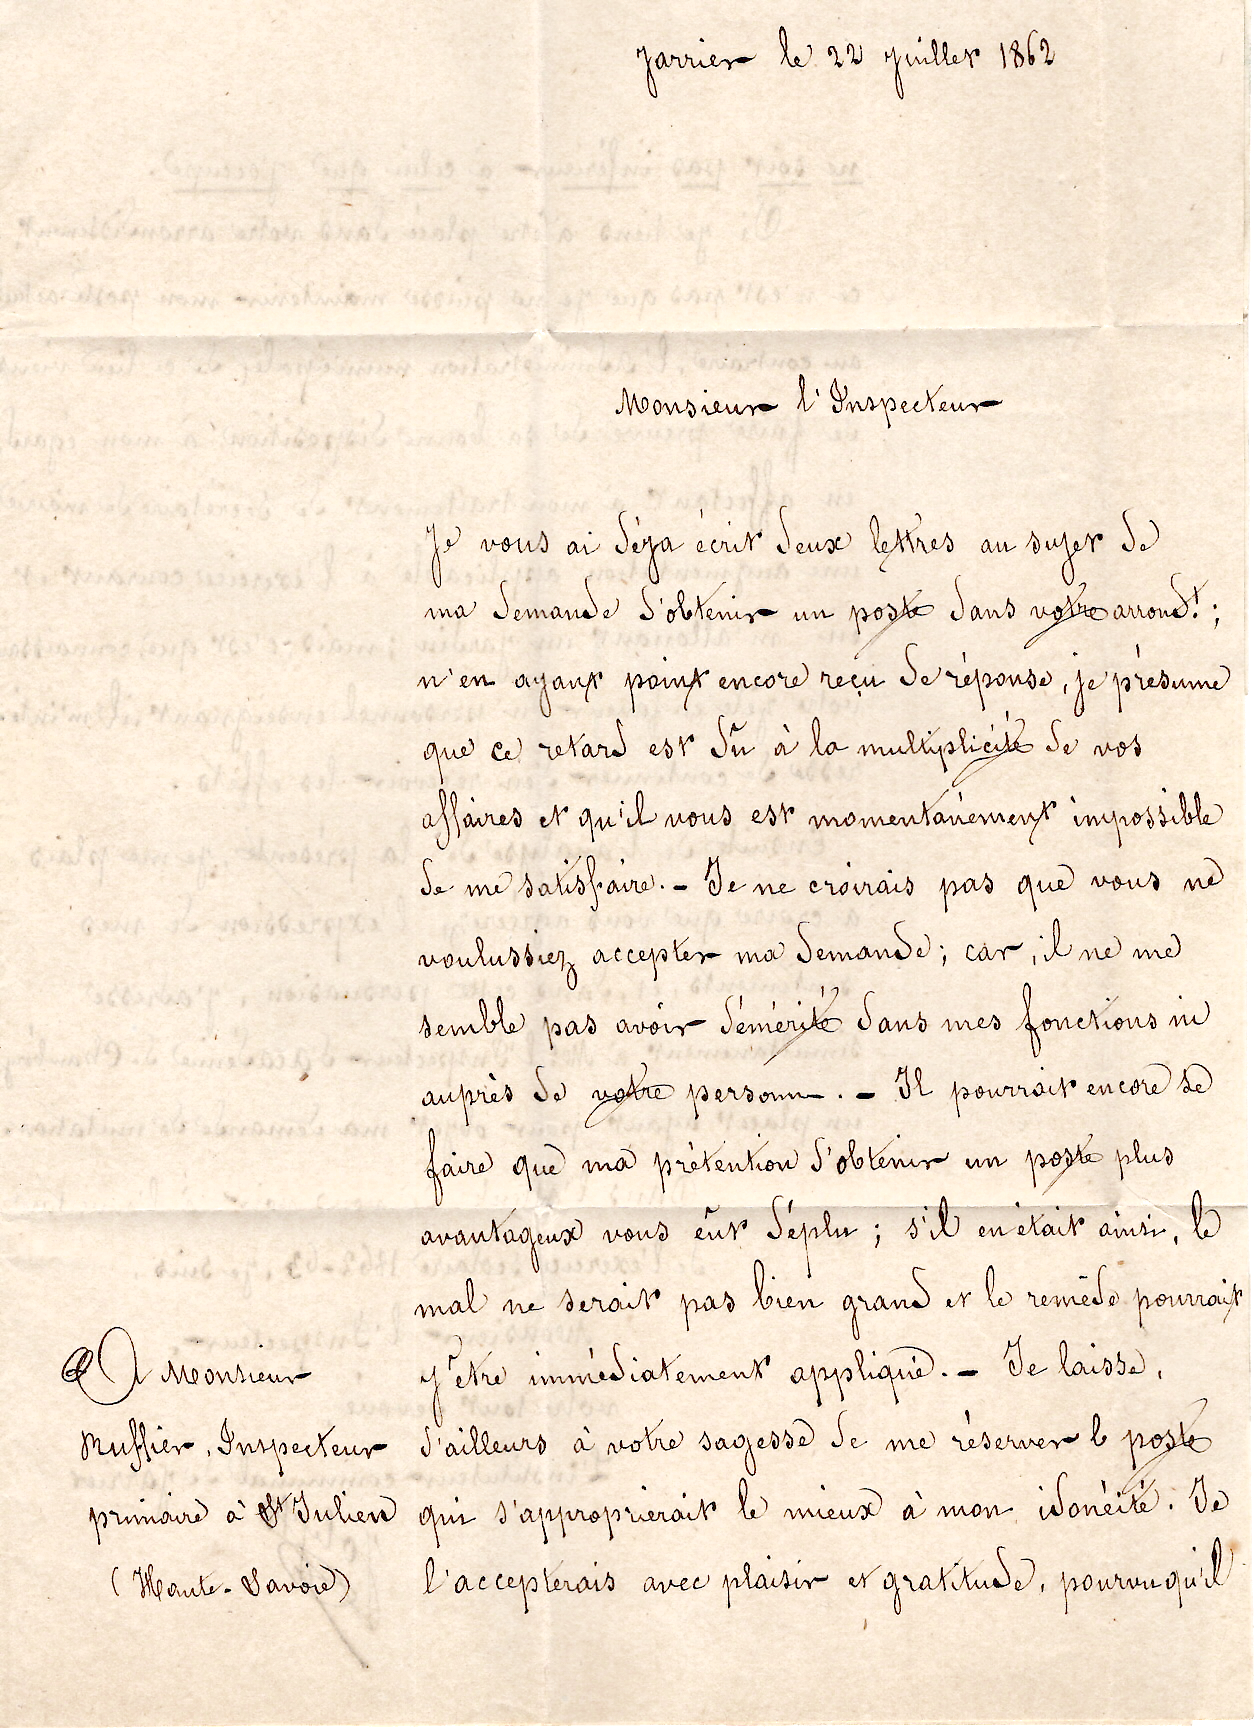 Jarrier le 22 Juillet 1862
Monsieur l'Inspecteur
Je vous ai déja écrit deux lettres au sujet de
ma demande d'obtenir un poste dans votre arrond.t ;
n'en ayant point encore reçu de réponse, je présume
que ce retard est dû à la multiplicité de vos
affaires et qu'il vous est momentanément impossible
de me satisfaire. – Je ne croirais pas que vous ne
voulussiez accepter ma demande ; car, il ne me
semble pas avoir démérité dans mes fonctions ni
auprès de votre personne. – Il pourrait encore se
faire que ma prétention d'obtenir un poste plus
avantageux vous eût déplu ; s'il en était ainsi, le
mal ne serait pas bien grand et le remède pourrait
y être immédiatement appliqué. – Je laisse,
d'ailleurs à votre sagesse de me réserver le poste
qui s'approprierait le mieux à mon idonéité. Je
l'accepterais avec plaisir et gratitude, pourvu qu'il
A Monsieur
Ruffier, Inspecteur
primaire à St Julien
(Haute-Savoie)